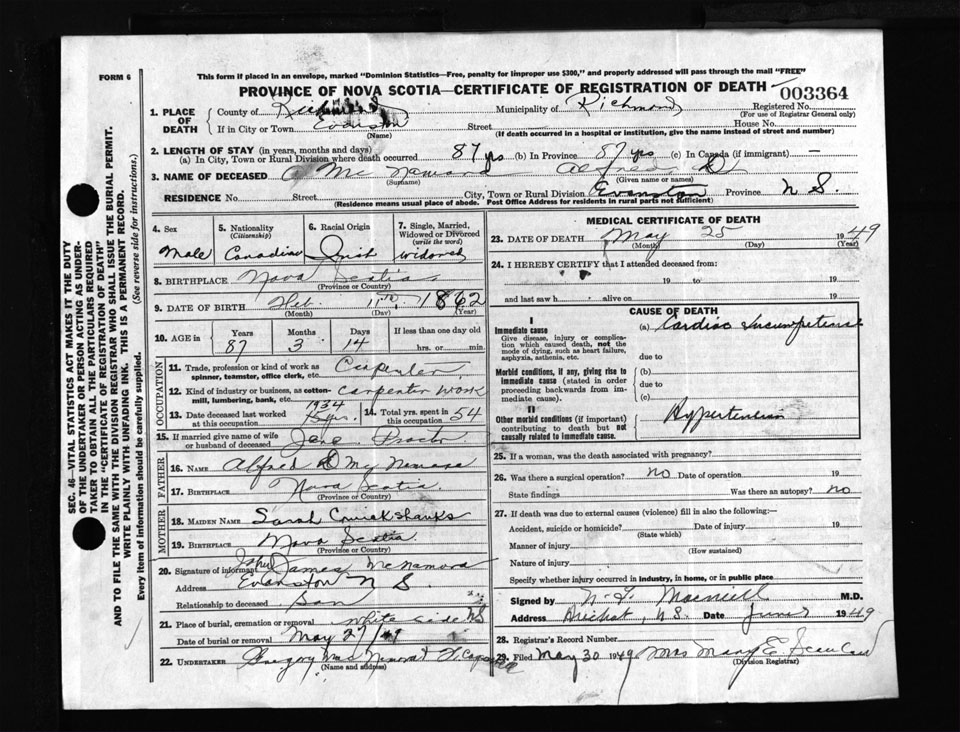 FORM 6
This form if placed in an envelope, marked "Dominion Statistics—Free, penalty for improper use $300," and properly addressed will pass through the mail "FREE"
PROVINCE OF NOVA SCOTIA—CERTIFICATE OF REGISTRATION OF DEATH
003364
1. PLACE OF DEATH
County of Richmond Municipality of Richmond Registered No.
(For use of Registrar General only)
If in City or Town Evanston Street House No.
(Name) (If death occurred in a hospital or institution, give the name instead of street and number)
2. LENGTH OF STAY (in years, months and days)
(a) In City, Town or Rural Division where death occurred 87 yrs (b) In Province 87 yrs (c) In Canada (if immigrant) —
3. NAME OF DECEASED Mc Namara Alfred D
(Surname) (Given name or names)
RESIDENCE No. Street City, Town or Rural Division Evanston Province N S.
(Residence means usual place of abode. Post Office Address for residents in rural parts not sufficient)
4. Sex
Male
5. Nationality
(Citizenship)
Canadian
6. Racial Origin
Irish
7. Single, Married, Widowed or Divorced
(write the word)
Widowed
8. BIRTHPLACE Nova Scotia
(Province or Country)
9. DATE OF BIRTH Feb. 11th, 1862
(Month) (Day) (Year)
10. AGE in Years Months Days If less than one day old
87 3 14 hrs. or min.
OCCUPATION
11. Trade, profession or kind of work as spinner, teamster, office clerk, etc. Carpenter
12. Kind of industry or business, as cotton-mill, lumbering, bank, etc. Carpenter work
13. Date deceased last worked at this occupation 1934 15 yrs.
14. Total yrs. spent in 54
15. If married give name of wife or husband of deceased Jane Proctor
FATHER
16. NAME Alfred D Mc Namara
17. BIRTHPLACE Nova Scotia.
(Province or Country)
MOTHER
18. MAIDEN NAME Sarah Cruickshanks
19. BIRTHPLACE Nova Scotia
(Province or Country)
20. Signature of informant John James McNamara
Address Evanston N S.
Relationship to deceased Son
21. Place of burial, cremation or removal White side NS
Date of burial or removal May 27/49
22. UNDERTAKER Gregory
(Name and address)
MEDICAL CERTIFICATE OF DEATH
23. DATE OF DEATH May 25 1949
(Month) (Day) (Year)
24. I HEREBY CERTIFY that I attended deceased from:
19 to 19
and last saw h alive on 19
CAUSE OF DEATH
I
Immediate cause
Give disease, injury or complication which caused death, not the mode of dying, such as heart failure, asphyxia, asthenia, etc.
(a) Cardiac Incompetence
due to
Morbid conditions, if any, giving rise to immediate cause (stated in order proceeding backwards from immediate cause).
(b)
due to
(c)
II
Other morbid conditions (if important) contributing to death but not causally related to immediate cause.
Hypertension
25. If a woman, was the death associated with pregnancy?
26. Was there a surgical operation? no Date of operation 19
State findings Was there an autopsy? no
27. If death was due to external causes (violence) fill in also the following:—
Accident, suicide or homicide? Date of injury 19
(State which)
Manner of injury
(How sustained)
Nature of injury
Specify whether injury occurred in industry, in home, or in public place
Signed by Macneill M.D.
Address Arichat, N.S. Date June 2 1949
28. Registrar's Record Number
29. Filed May 30 1949 Mrs Mary E.
(Division Registrar)
SEC. 46—VITAL STATISTICS ACT MAKES IT THE DUTY
OF THE UNDERTAKER OR PERSON ACTING AS UNDERTAKER TO OBTAIN ALL THE PARTICULARS REQUIRED
IN THE "CERTIFICATE OF REGISTRATION OF DEATH"
AND TO FILE THE SAME WITH THE DIVISION REGISTRAR WHO SHALL ISSUE THE BURIAL PERMIT.
WRITE PLAINLY WITH UNFADING INK. THIS IS A PERMANENT RECORD.
Every item of information should be carefully supplied. (See reverse side for instructions.)